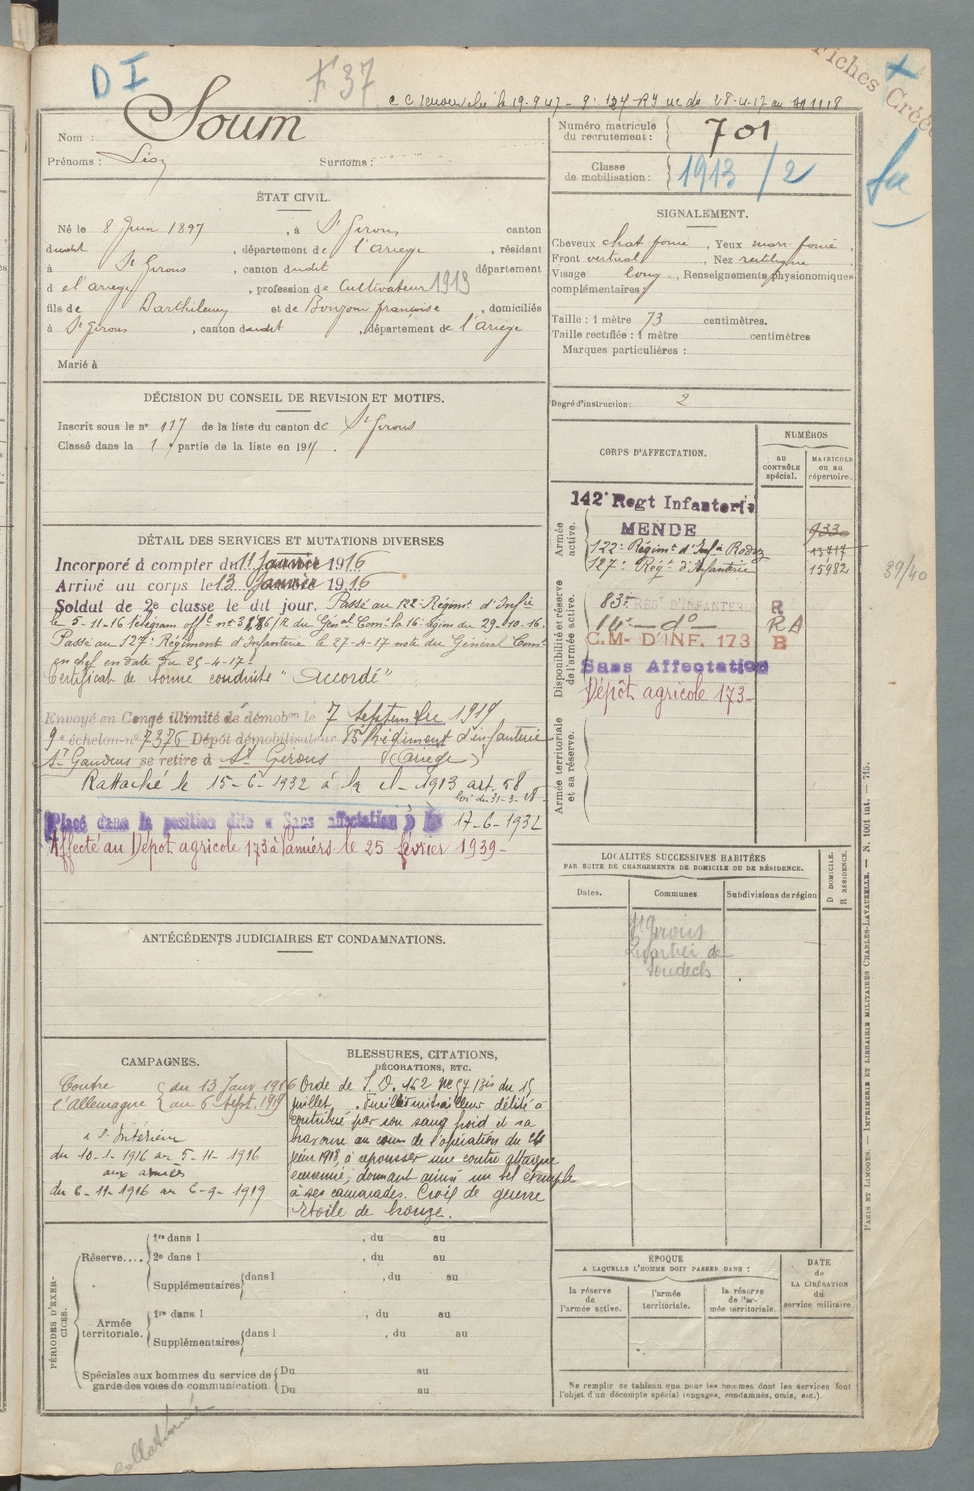 D I
F 37
Fiches Créé
Nom : Soum
Prénoms :
Surnoms :
Numéro matricule
du recrutement : 701
Classe
de mobilisation : 1913/2
ÉTAT CIVIL.
Né le 8 Juin 1897, à St Girons canton
dudit, département de l'Ariège, résidant
à St Girons, canton dudit département
d el ariege, profession de Cultivateur 1913
fils de Barthélemy et de françoise, domiciliés
à St Girons, canton dudit, département de l'Ariège
Marié à
SIGNALEMENT.
Cheveux chat foncé, Yeux marr foncé,
Front vertical, Nez rectiligne,
Visage long, Renseignements physionomiques
complémentaires :
Taille : 1 mètre 73 centimètres.
Taille rectifiée : 1 mètre centimètres
Marques particulières :
Degré d'instruction : 2
DÉCISION DU CONSEIL DE REVISION ET MOTIFS.
Inscrit sous le n° 117 de la liste du canton de St Girons
Classé dans la 1e partie de la liste en 191
DÉTAIL DES SERVICES ET MUTATIONS DIVERSES
Incorporé à compter du 11 Janvier 1916
Arrivé au corps le 13 Janvier 1916
Soldat de 2e classe le dit jour. Passé au 122e Régimt d'Infie
le 5-11-16 telegram du Génal Comt la 16e région du 29-10-16.
Passé au 127e Régiment d'Infanterie le 27-4-17 note du Général Comt
en chef en date du 25-4-17.
Certificat de bonne conduite "Accordé"
Envoyé en Congé illimité de démobon le 7 Septembre 1919
9e échelon n° 7376 Dépôt démobilisateur 83e Régiment d'infanterie
St Gaudens se retire à St Girons (Ariège)
Rattaché le 15-6-1932 à la cl. 1913 art. 58
loi du 31-3-28
Placé dans la position dite « Sans affectation » le 17-6-1932
Affecté au Dépôt agricole 173 à Pamiers le 25 février 1939-
CORPS D'AFFECTATION.
NUMÉROS
au
CONTRÔLE
spécial.
MATRICULE
ou au
répertoire.
Armée
active.
142e Regt Infanterie
MENDE
9330
122e Régimt d'Infie Rodez 13717
127e Regt d'Infanterie 15982
39/40
Disponibilité et réserve
de l'armée active.
83e REGt D'INFANTERIE R
14e - do - R A
C.M. D'INF. 173 B
Sans Affectation
Dépôt agricole 173-
Armée territoriale
et sa réserve.
LOCALITÉS SUCCESSIVES HABITÉES
PAR SUITE DE CHANGEMENTS DE DOMICILE OU DE RÉSIDENCE.
Dates.
Communes.
Subdivisions de région
D DOMICILE.
R RÉSIDENCE.
St Girons
Quartier de
ANTÉCÉDENTS JUDICIAIRES ET CONDAMNATIONS.
CAMPAGNES.
Contre du 13 Janv 1916
l'Allemagne au 6 Sept. 1919
Intérieur
du 10-1-1916 au 5-11-1916
aux armées
du 6-11-1916 au 6-9-1919
BLESSURES, CITATIONS,
DÉCORATIONS, ETC.
Ordre de I. D. 162 n° 57 bis du 15
juillet. Fusilier mitrailleur d'élite a
contribué par son sang froid et sa
bravoure au cours de l'opération du
juin 1918, à repousser une contre attaque
ennemie, donnant ainsi un bel exemple
à ses camarades. Croix de guerre
Etoile de bronze.
PÉRIODES D'EXER-
CICES.
Réserve....
1re dans l , du au
2e dans l , du au
Supplémentaires dans l , du au
Armée
territoriale.
1re dans l , du au
Supplémentaires dans l , du au
Spéciales aux hommes du service de
garde des voies de communication
Du au
Du au
ÉPOQUE
A LAQUELLE L'HOMME DOIT PASSER DANS :
la réserve
de
l'armée active.
l'armée
territoriale.
la réserve
de l'ar-
mée territoriale.
DATE
de
LA LIBÉRATION
du
service militaire.
Ne remplir ce tableau que pour les hommes dont les services font
l'objet d'un décompte spécial (engagés, condamnés, omis, etc.).
PARIS ET LIMOGES. — IMPRIMERIE ET LIBRAIRIE MILITAIRES CHARLES-LAVAUZELLE. — N. 1001 int. — 715.